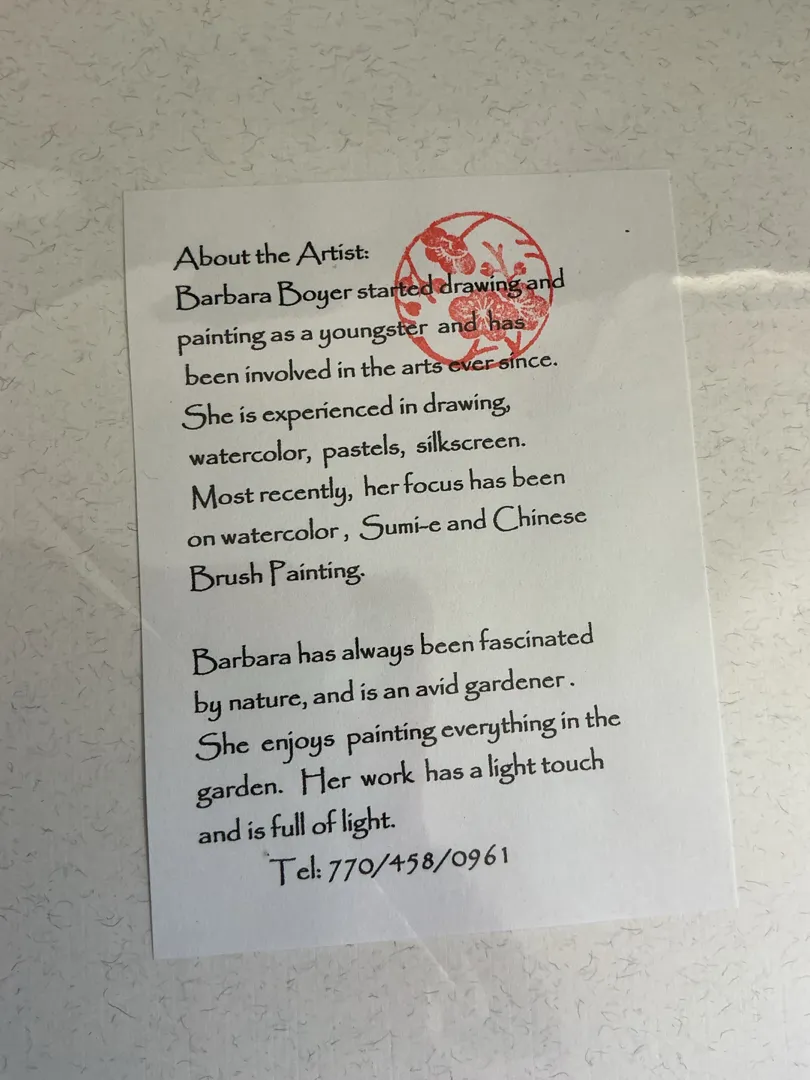 About the Artist:
Barbara Boyer started drawing and
painting as a youngster and has
been involved in the arts ever since.
She is experienced in drawing,
watercolor, pastels, silkscreen.
Most recently, her focus has been
on watercolor, Sumi-e and Chinese
Brush Painting.
Barbara has always been fascinated
by nature, and is an avid gardener.
She enjoys painting everything in the
garden. Her work has a light touch
and is full of light.
Tel: 770/458/0961